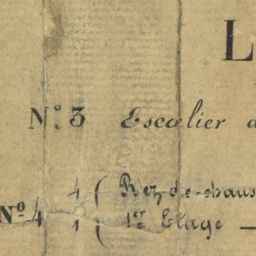 L
N.º 3 Escalier d
4 ( Rez-de-chaus
Nº 4 1 ( 1er Etage —